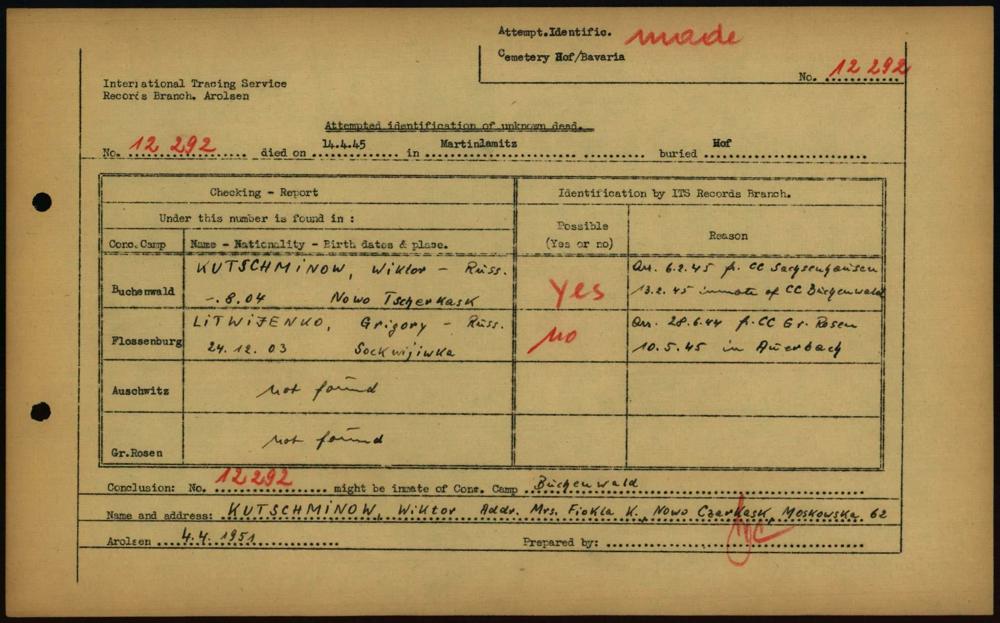 Attempt.Identific. made
Cemetery Hof/Bavaria
No. 12 292
International Tracing Service
Records Branch. Arolsen
Attempted identification of unknown dead.
No. 12 292 died on 14.4.45 in Martinlamitz buried Hof
Checking - Report
Identification by ITS Records Branch.
Under this number is found in :
Possible
(Yes or no)
Reason
Conc. Camp
Name - Nationality - Birth dates & place.
Buchenwald
KUTSCHMINOW, Wiktor - Russ.
-.8.04 Nowo Tscherkask
Yes
Arr. 6.2.45 fr. CC Sachsenhausen
13.2.45 inmate of CC Buchenwald
Flossenburg
LITWIJENKO, Grigory - Russ.
24.12.03 Sockwijiwka
no
Arr. 28.6.44 fr. CC Gr. Rosen
10.5.45 in Auerbach
Auschwitz
not found
Gr.Rosen
not found
Conclusion: No. 12292 might be inmate of Conc. Camp Buchenwald
Name and address: KUTSCHMINOW, Wiktor Addr. Mrs. Fiokla K., Nowo Czarkask, Moskowska 62
Arolsen 4.4.1951
Prepared by: